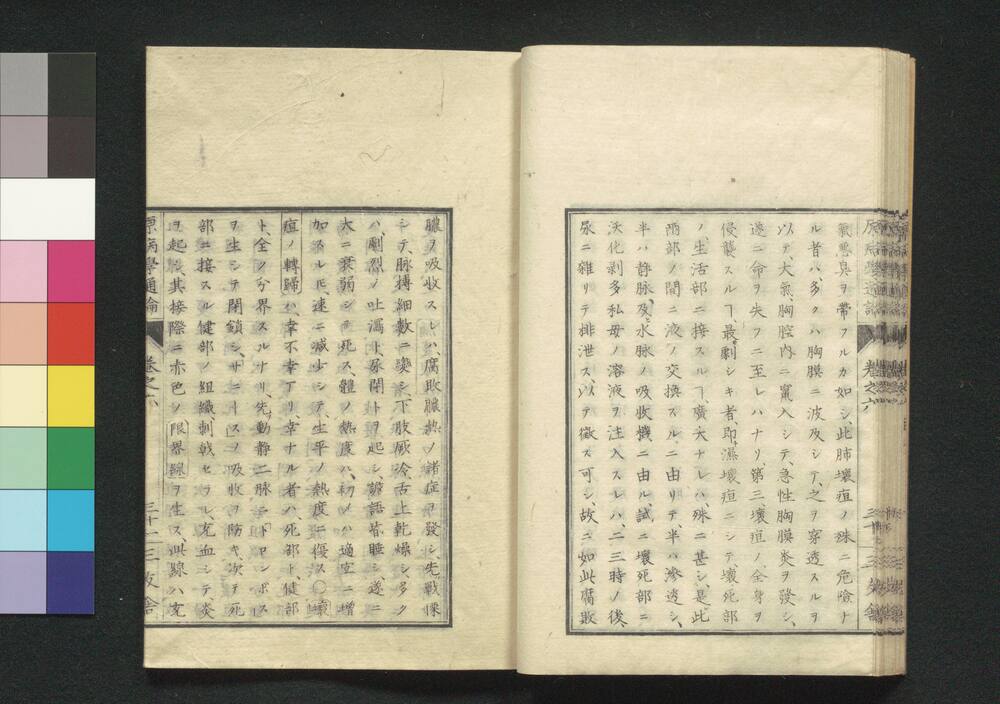 氣惡臭ヲ帶フルカ如シ、此肺壞疽ノ殊ニ危險ナ
ル者ハ、多クハ胸膜ニ波及シテ、之ヲ穿透スルヲ
以テ、大氣、胸腔内ニ竄入シテ、急性胸膜炎ヲ發シ、
遂ニ命ヲ失フニ至レハナリ、第三、壞疽ノ、全身ヲ
侵襲スルヿ、最劇シキ者、即濕壞疽ニシテ、壞死部
ノ、生活部ニ接スルヿ、廣大ナレハ、殊ニ甚シ、是此
兩部ノ間ニ液ノ交換スルニ由リテ、半ハ滲透シ、
半ハ靜脉、及水脉ノ吸收機ニ由ル、試ニ壞死部ニ
沃化剥多私毋ノ溶液ヲ注入スレハ、二三時ノ後、
尿ニ雜リテ排泄ス、以テ徵ス可シ、故ニ如此腐敗
膿ノ吸收スレハ、腐敗膿熱ノ諸症ヲ發シ、先戰慄
シテ、脉搏細數ニ變シ、下肢厥冷、舌上乾燥シ、多ク
ハ、劇烈ノ吐瀉ト、尿閉トヲ起シ、譫語昏睡シ、遂ニ
大ニ衰弱シテ死ス、體ノ熱度ハ、初メハ適宜ニ增
加スルモ、速ニ減少シテ、生平ノ熱度ニ復ス、〇壞
疽ノ轉歸ハ、幸不幸アリ、幸ナル者ハ、死部ト、健部
ト、全ク分界スルナリ、先動靜二脉ニトロンボス
ヲ生シテ閉鎖シ、サニースノ吸收ヲ防キ、次テ死
部ニ接スル健部ノ組織、刺戟セラレ、充血シテ炎
ヲ起シ、其接際ニ赤色ノ限界線ヲ生ス、此線ハ充
原病學通論
卷之六
三十二
三友舎